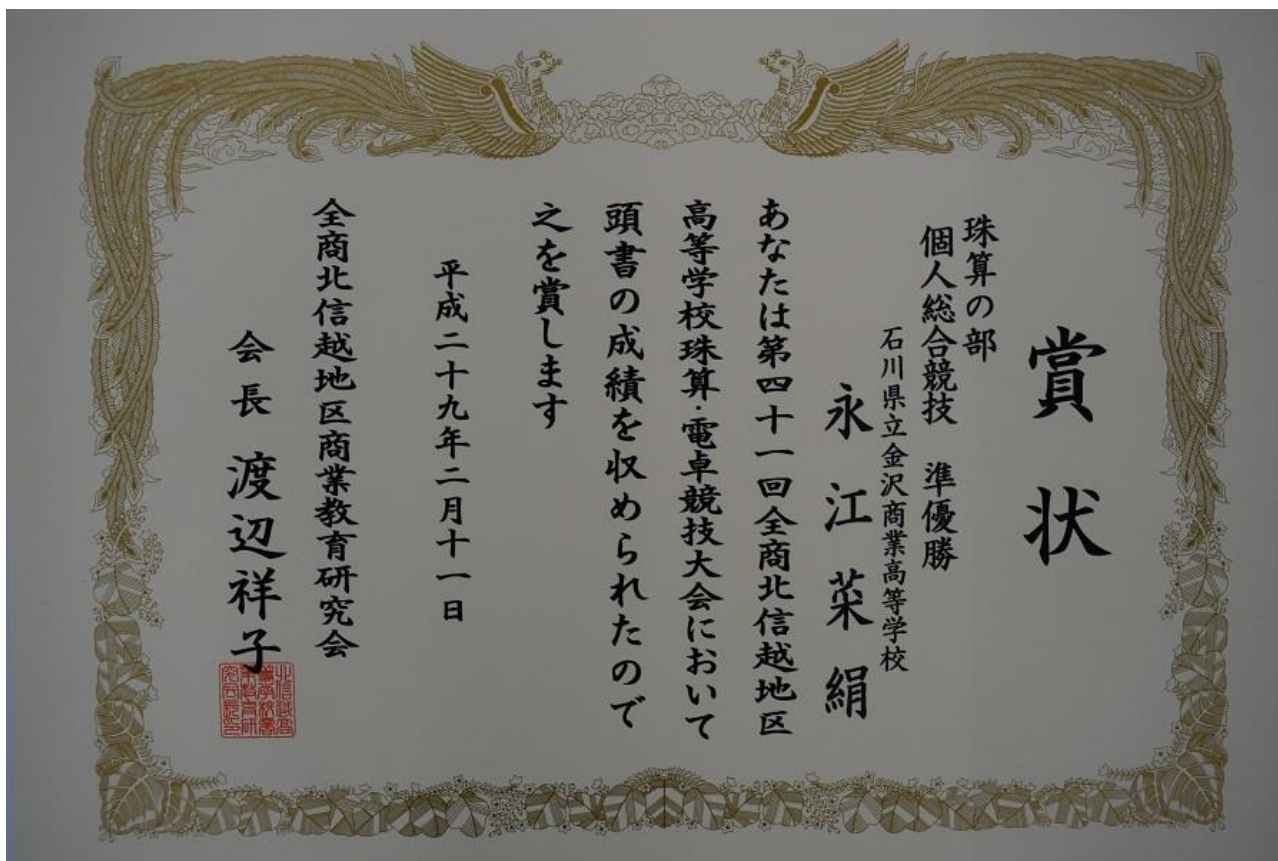 賞状
珠算の部
個人総合競技 準優勝
石川県立金沢商業高等学校
永江菜絹
あなたは第四十一回全商北信越地区
高等学校珠算・電卓競技大会において
頭書の成績を収められたので
之を賞します
平成二十九年二月十一日
全商北信越地区商業教育研究会
会長 渡辺祥子